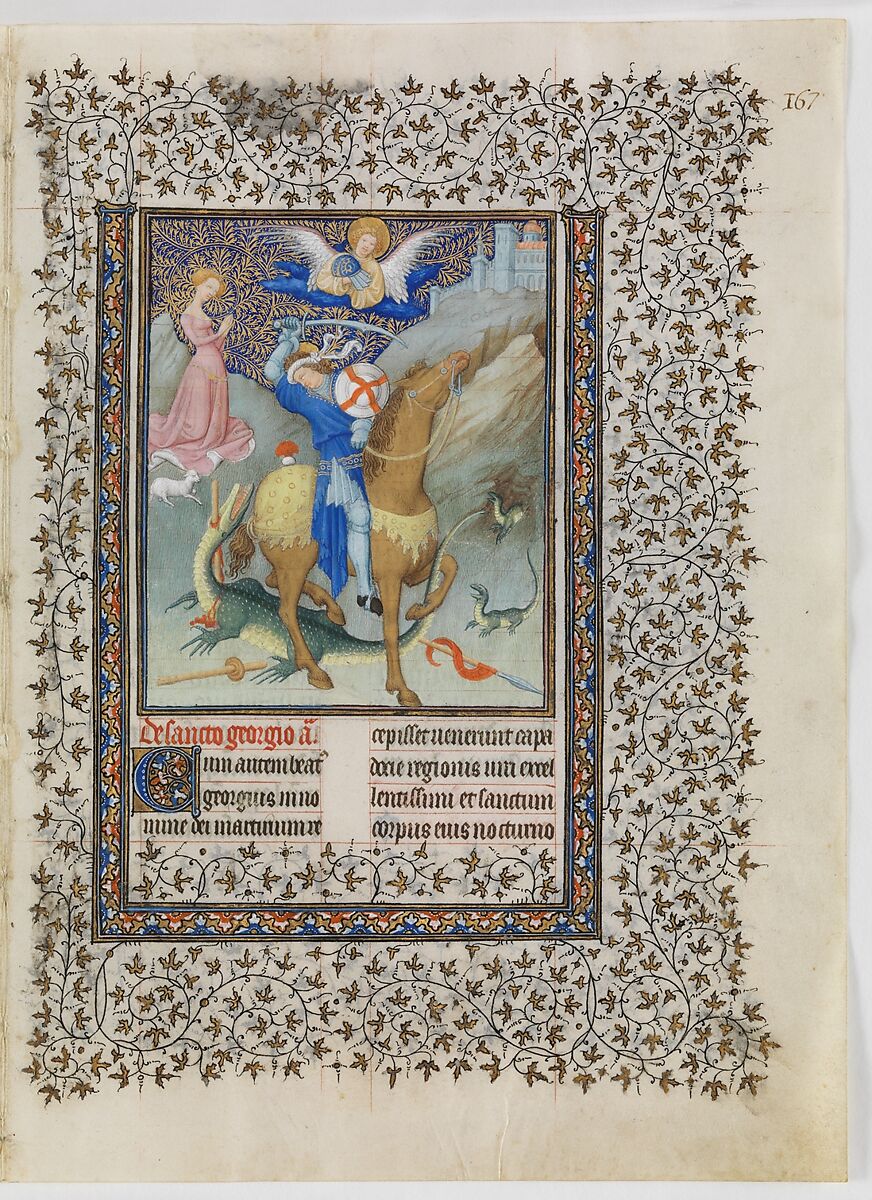 167
De sancto georgio añ.
Cum autem beat᷒
georgius in no
mine dei martirium re
cepisset uenerunt capa
docie regionis uiri excel
lentissimi et sanctum
corpus eius nocturno